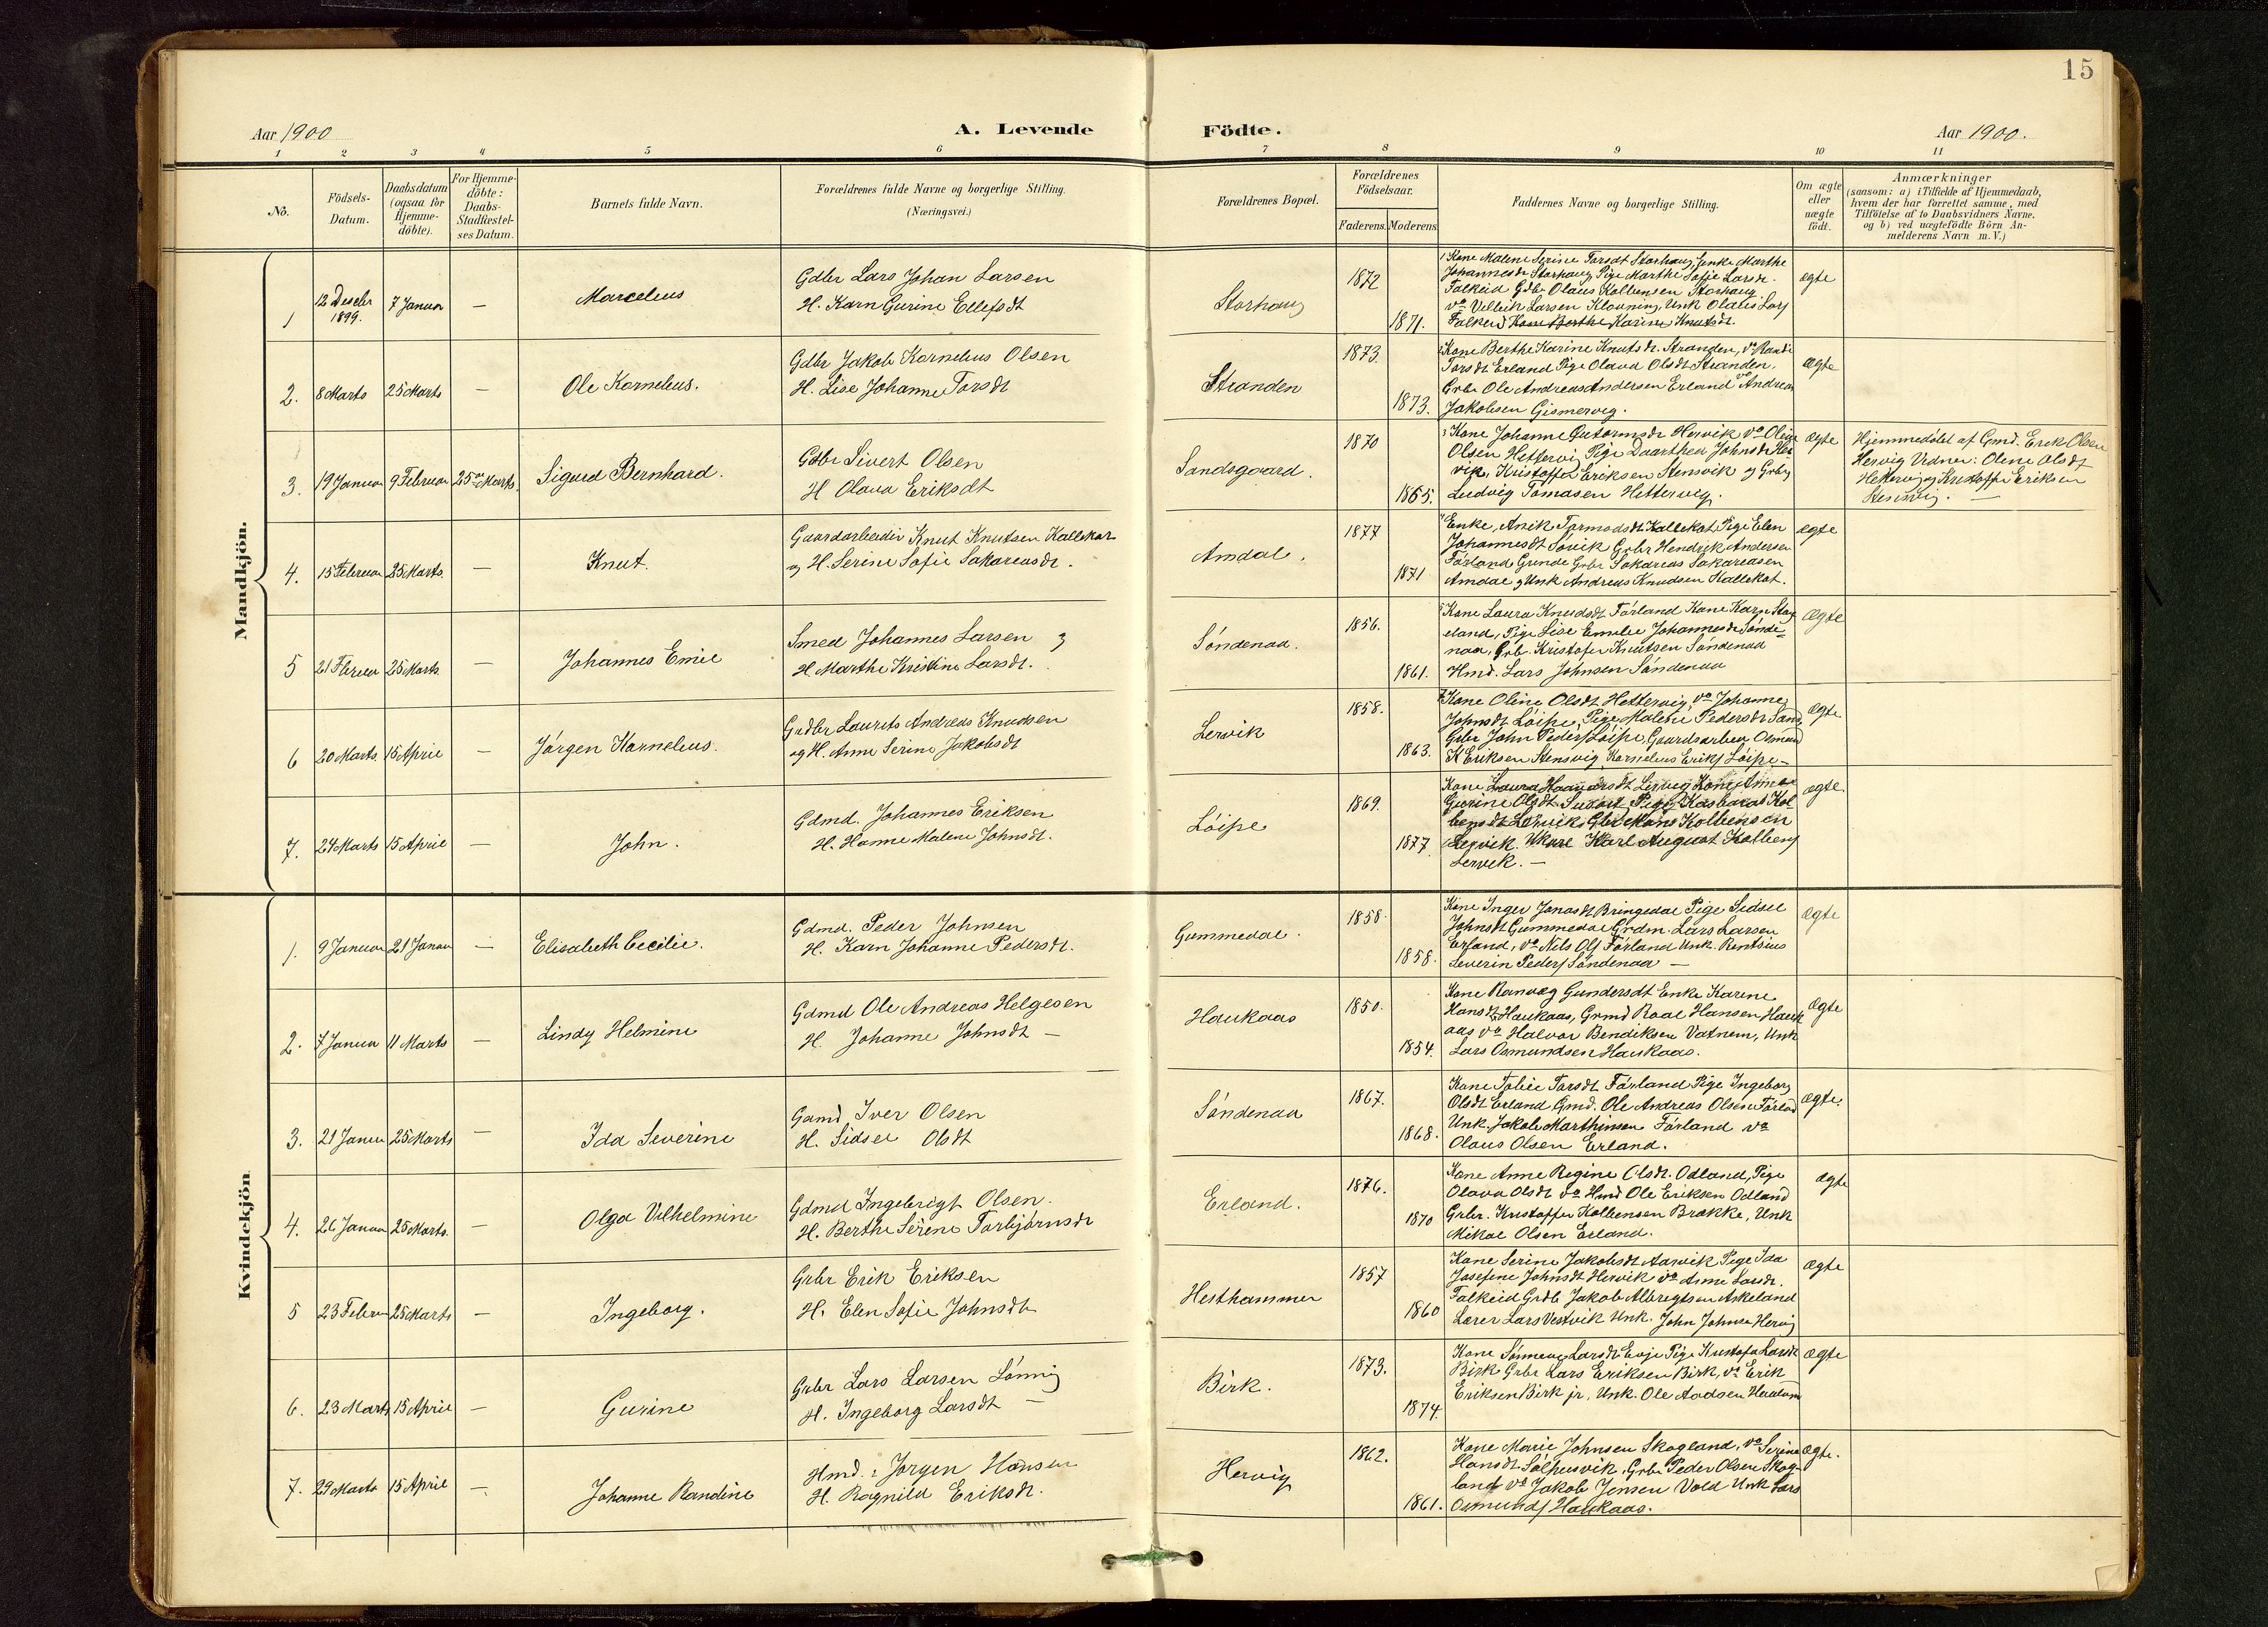 15
Aar 1900
A. Levende
Födte.
Aar 1900.
1 2 3 4 5 6 7 8 9 10 11
No.
Födsels-
Datum.
Daabsdatum
(ogsaa for
Hjemme-
döbte).
For Hjemme-
döbte:
Daabs-
Stadfæstel-
ses Datum.
Barnets fulde Navn.
Forældrenes fulde Navne og borgerlige Stilling.
(Næringsvei.)
Forældrenes Bopæl.
Forældrenes
Födselsaar.
Faderens. Moderens.
Faddernes Navne og borgerlige Stilling.
Om ægte
eller
uægte
födt.
Anmærkninger
(saasom: a) i Tilfælde af Hjemmedaab,
hvem der har forrettet samme, med
Tilföielse af to Daabsvidners Navne.
og b) ved uægtefödte Börn An-
melderens Navn m. V.)
Mandkjön.
1
12 Desebr
1899.
7 Januar
—
Marcelius
Gdbr Lars Johan Larsen
H. Karn Gurine Ellefsdt
Storhaug
1872
1871.
Kone Malene Serine Torsdt Storhaug, Enke Marthe
Johannesdr Storhaug Pige Marthe Sofie Larsdr.
Falkeid Gdbr Olaus Kolbensen Storhaug
vo Villeik Larsen Klovning, Unk Olaus Lars
Falkeid Kone Berthe Karine Knutsdt.
ægte
2.
8 Marts
25 Marts
—
Ole Kornelius.
Gdbr Jakob Kornelius Olsen
H. Lise Johanne Torsdt
Stranden
1873.
1873.
Kone Berthe Karine Knutsdr. Stranden, vo Randi
Torsdt Erland Pige Olava Olsdt Stranden.
Grbr Ole Andreas Andersen Erland vo Andreas
Jakobsen Gismervig.
Ægte
3.
19 Januar
9 Februar
25 Marts.
Sigurd Bernhard.
Gdbr Sivert Olsen
H Olava Eriksdt
Sandsgaard.
1870
1865.
Kone Johanne Gutormsdr Hervik vo Oline
Olsen Hettervi Pige Daarthea Johnsdt Her
vik, Kristoffer Eriksen Stensvik og Grbr
Ludvig Tomasen Hettervig.
ægte
Hjemmedøbt af Gmd. Erik Olsen
Hervig Vidner: Oline Olsdt
Hettervig og Kristoffer Eriksen
Stensvig. —
4.
15 Februar
25 Marts.
—
Knut.
Gaardarbeider Knut Knutsen Kallekot
og H. Serine Sofie Sakariasdr.
Amdal.
1877
1871
Enke, Anik Tormodsdt Kallekot Pige Elen
Johannesdt Søvik Grbr Hendrik Andersen
Førland Grinde Grbr Sakarias Sakariasen
Amdal og Unk Andreas Knudsen Kallekot.
ægte
5
21 Februar
25 Marts.
—
Johannes Emil
Smed Johannes Larsen
H. Marthe Kristine Larsdt.
Søndenaa.
1856.
1861.
Kone Laura Knudsdt Førland Kone Karn Stag
eland, Pige Lise Emelie Johannesdr Sønde-
naa, Grb. Kristofer Knutsen Søndenaa
Hmd. Lars Johnsen Søndenaa
Ægte
6
20 Marts.
15 April
—
Jørgen Kornelius.
Grdbr Laurits Andreas Knudsen
og H. Anne Serine Jakobsdt
Lervik
1858.
1863.
Kone Oline Olsdt Hettervig, vo Johanne
Johnsdt Løipe, Pige Malene Pedersdr Sand
Grbr John Peders Løipe, Gaardsarbeir Osmund
K Eriksen Stensvig, Kornelius Eriks Løipe —
Ægte
7.
24 Marts
15 April
—
John.
Gdmd. Johannes Eriksen
H. Hanne Malene Johnsdt.
Løipe
1869.
1877
Kone Laura Lervig Kone Anne
Gurine Olsdt Pige Kol-
bensdt Lervik, Gbr Mons Kolbensen
Lervik. Karl August Kolbens
Lervik. —
ægte
Kvindekjön
1.
9 Januar
21 Januar
—
Elisabeth Cecilie.
Gdmd. Peder Johnsen
H. Karn Johanne Pedersdt.
Gummedal.
1858.
1858.
Kone Inger Jonasdt Bringedal Pige Sidsel
Johnsdt Gummedal Grdm. Lars Larsen
Erland, vo Nils Ols Førland Unk. Rentsius
Severin Peders Søndenaa —
Ægte
2.
7 Januar
11 Marts
—
Lindy Helmine
Gdmd Ole Andreas Helgesen
H. Johanne Johnsdt —
Haukaas
1850.
1854.
Kone Ranvæg Gundersdt Enke Karine
Hansdt Haukaas, Grmd Roal Hansen Hauk
aas vo Halvor Bendiksen Vatnem, Unk
Lars Osmundsen Haukaas.
Ægte
3.
21 Januar
25 Marts
—
Ida Severine
Gamd Iver Olsen
H. Sidsel Olsdt
Søndenaa
1867.
1868.
Kone Tobie Torsdt Førland Pige Ingeborg
Olsdt Erland, Gmd. Ole Andreas Olsen Førland
Unk. Jakob Marthinsen Førland vo
Olaus Olsen Erland.
ægte.
4.
26 Januar
25 Marts.
—
Olga Vilhelmine
Gdmd Ingebrigt Olsen.
H. Berthe Serine Torbjørnsdr
Erland.
1876.
1870
Kone Anne Regine Olsdt. Odland, Pige
Olava Olsdt vo Hmd Ole Eriksen Odland
Grbr. Kristoffer Kolbensen Brække, Unk
Mikal Olsen Erland.
ægte
5
23 Februar
25 Marts
—
Ingeborg.
Grbr Erik Eriksen
H. Elen Sofie Johnsdt
Hesthammer
1857
1860
Kone Serine Jakobsdt Aarvik Pige Ida
Josefine Johnsdt Hervik vo Anne Larsdr.
Falkeid Grdb. Jakob Albregtsen Askeland
Lærer Lars Vestvik Unk. John Johnsen Hervig
Ægte
6.
23 Marts
15 April
—
Gurine
Grbr Lars Larsen Lønnig
H. Ingeborg Larsdt —
Birk.
1873.
1874.
Kone Sønneve Larsdt Evje Pige Kristofa Larsdt
Birk Grbr Lars Eriksen Birk, vo Erik
Eriksen Birk jr, Unk. Ole Aadsen
Ægte
7.
29 Marts
15 April
—
Johanne Randine
Hmd. Jørgen Hansen
H. Ragnild Eriksdt.
Hervig
1862.
1861.
Kone Marie Johnsen Skogland, vo Serina
Hansdt Grbr Peder Olsen Skog-
land vo Jakob Jensen Vold Unk Lars
Osmunds Haukaas.
Ægte.